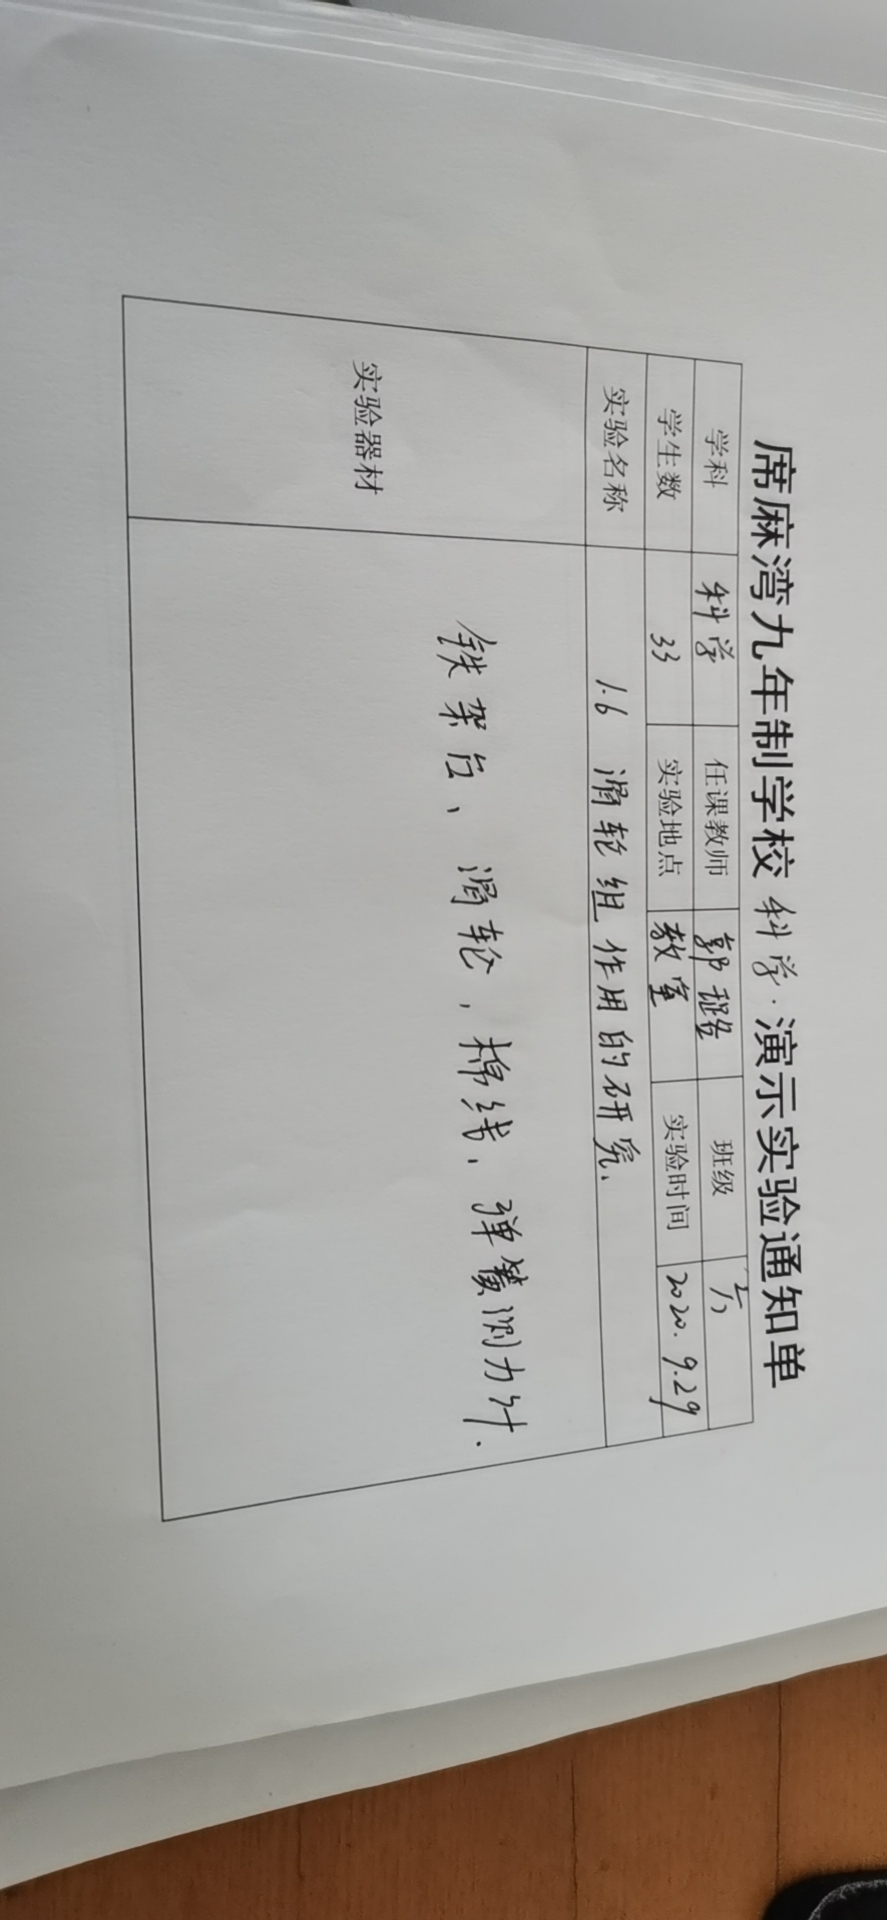 席麻湾九年制学校 科学·演示实验通知单
学科 科学 任课教师 郭 班级
学生数 33 实验地点 教室 实验时间 2020.9.29
实验名称 1.6 滑轮组作用的研究.
实验器材 铁架台、滑轮，棉线、弹簧测力计.